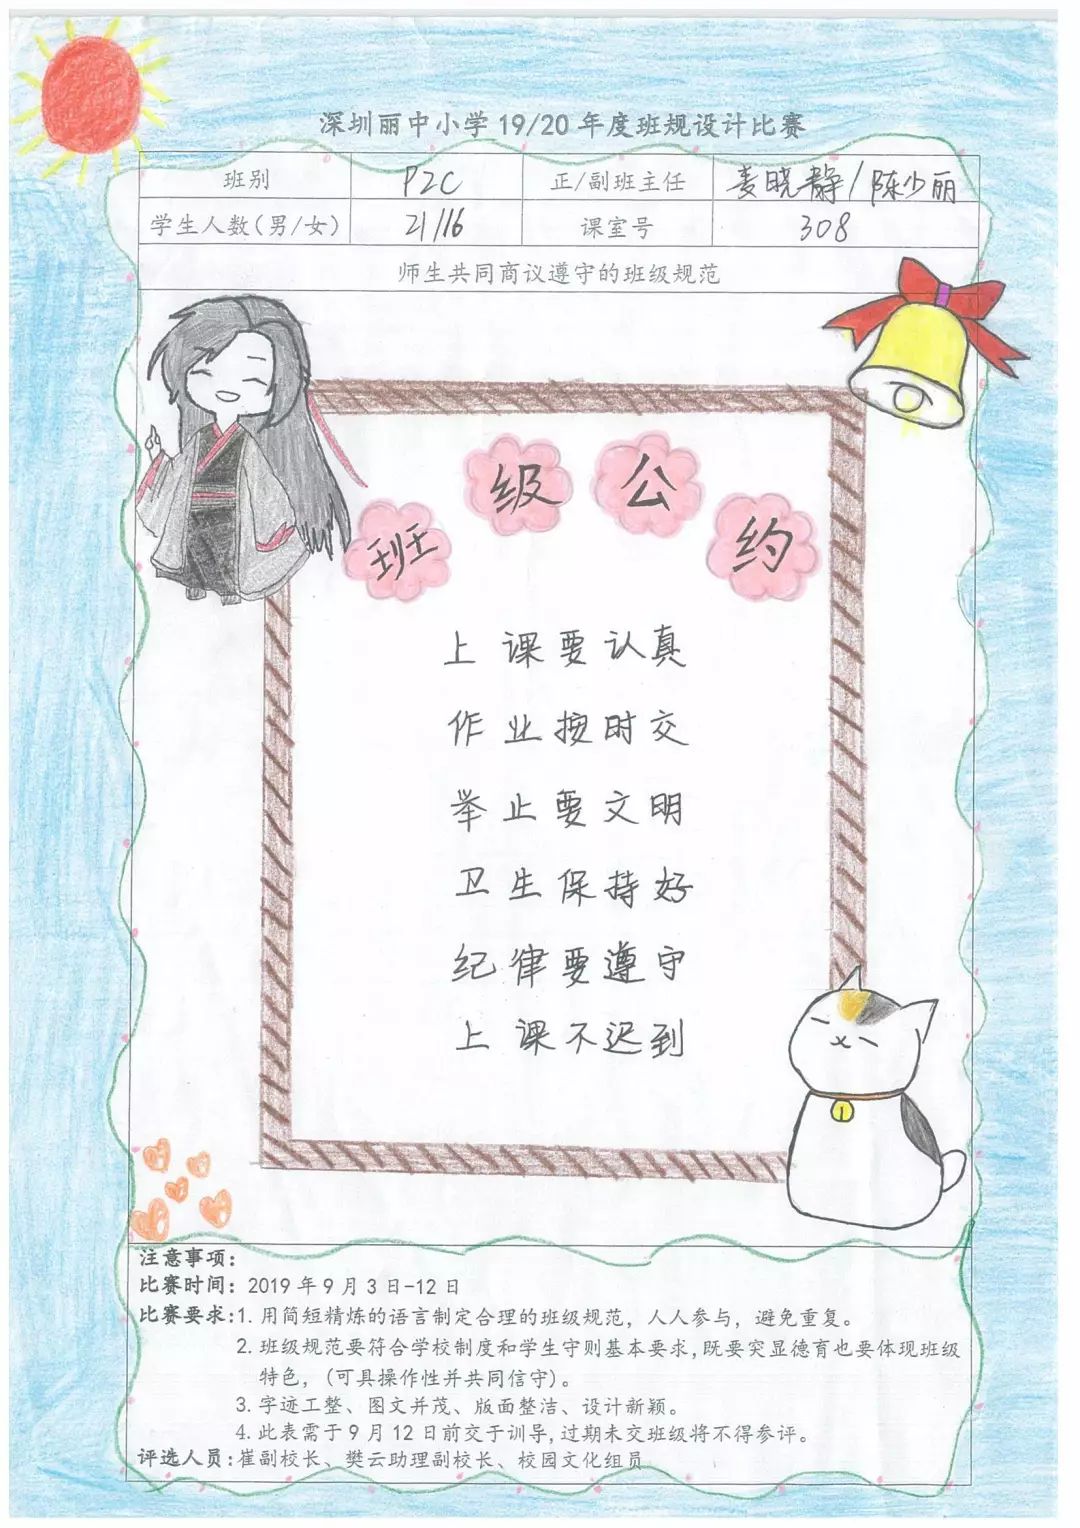 深圳丽中小学 19/20 年度班规设计比赛
班别 P2C 正/副班主任 姜晓静/陈少丽
学生人数(男/女) 21/16 课室号 308
师生共同商议遵守的班级规范
班级公约
上课要认真
作业按时交
举止要文明
卫生保持好
纪律要遵守
上课不迟到
注意事项：
比赛时间：2019 年 9 月 3 日-12 日
比赛要求:1. 用简短精炼的语言制定合理的班级规范，人人参与，避免重复。
2. 班级规范要符合学校制度和学生守则基本要求,既要突显德育也要体现班级
特色，(可具操作性并共同信守)。
3. 字迹工整、图文并茂、版面整洁、设计新颖。
4. 此表需于 9 月 12 日前交于训导,过期未交班级将不得参评。
评选人员:崔副校长、樊云助理副校长、校园文化组员